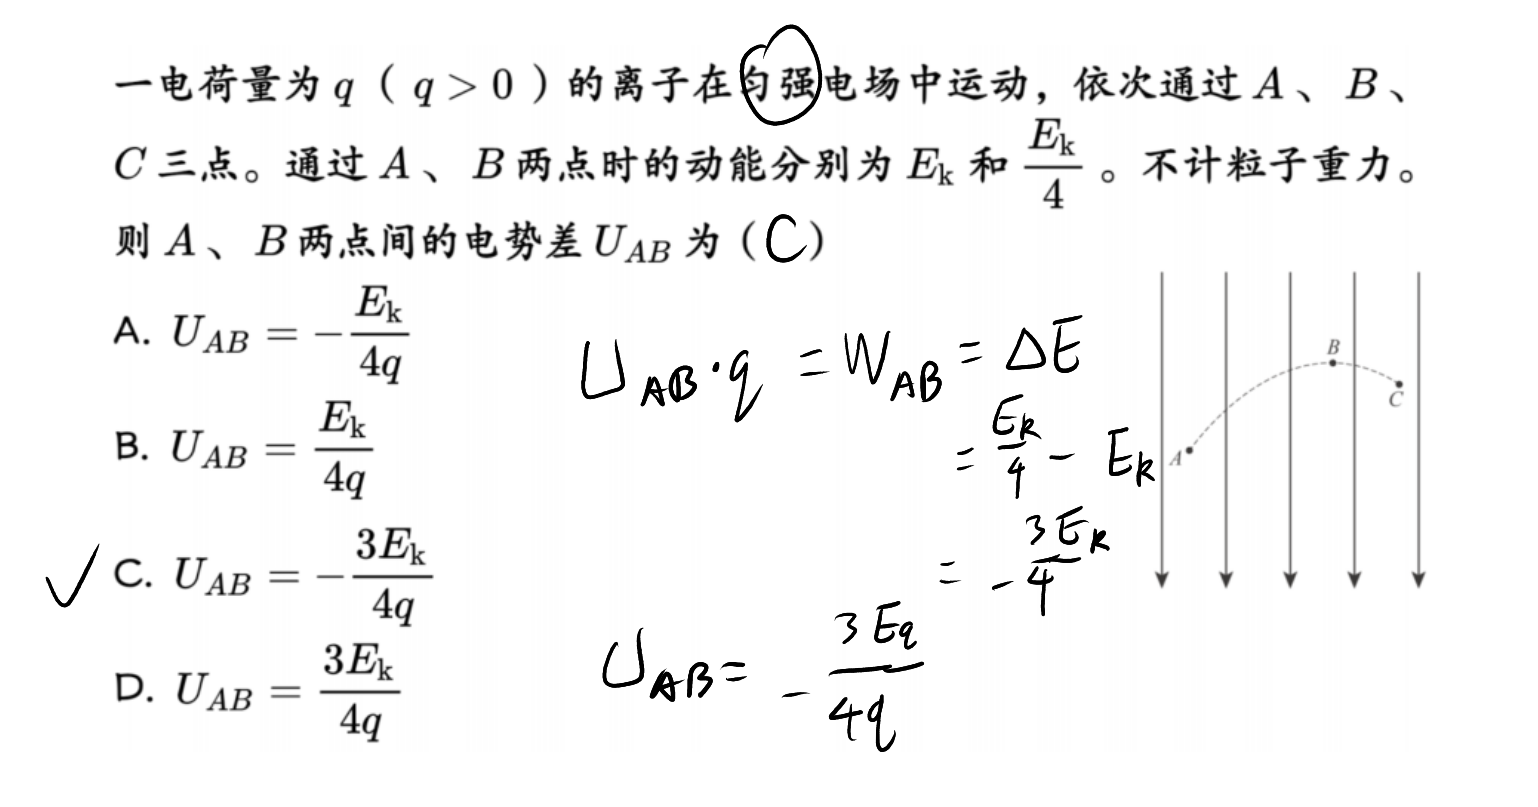 一电荷量为 q ( q > 0 ) 的离子在匀强电场中运动，依次通过 A 、 B 、
C 三点。通过 A 、 B 两点时的动能分别为 Ek 和 Ek/4 。不计粒子重力。
则 A 、 B 两点间的电势差 UAB 为 ( C )
A. UAB = −Ek/4q
B. UAB = Ek/4q
✓ C. UAB = −3Ek/4q
D. UAB = 3Ek/4q
UAB·q = WAB = ΔE
= Ek/4 − Ek
= −3Ek/4
UAB = −3Eq/4q
B
C
A